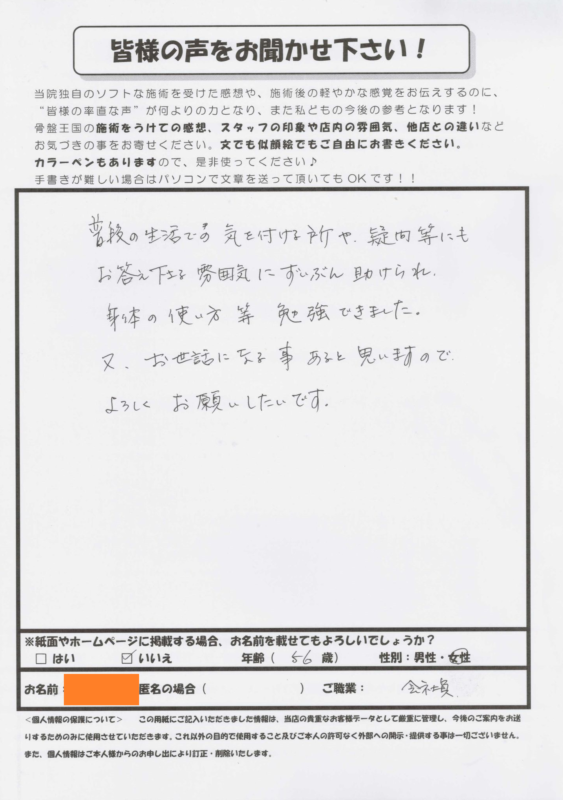 皆様の声をお聞かせ下さい！
当院独自のソフトな施術を受けた感想や、施術後の軽やかな感覚をお伝えするのに、
“皆様の率直な声”が何よりの力となり、また私どもの今後の参考となります！
骨盤王国の施術をうけての感想、スタッフの印象や店内の雰囲気、他店との違いなど
お気づきの事をお寄せください。文でも似顔絵でもご自由にお書きください。
カラーペンもありますので、是非使ってください♪
手書きが難しい場合はパソコンで文章を送って頂いてもOKです！！
普段の生活での気を付ける所や、疑問等にも
お答え下さる雰囲気にずいぶん助けられ、
身体の使い方等 勉強できました。
又、お世話になる事あると思いますので、
よろしくお願いしたいです。
※紙面やホームページに掲載する場合、お名前を載せてもよろしいでしょうか？
□はい ☑いいえ 年齢（56歳） 性別：男性・女性
お名前： 匿名の場合（ ） ご職業： 会社員
＜個人情報の保護について＞ この用紙にご記入いただきました情報は、当店の貴重なお客様データとして厳重に管理し、今後のご案内をお送
りするためのみに使用させていただきます。これ以外の目的で使用すること及びご本人の許可なく外部への開示・提供する事は一切ございません。
また、個人情報はご本人様からのお申し出により訂正・削除いたします。